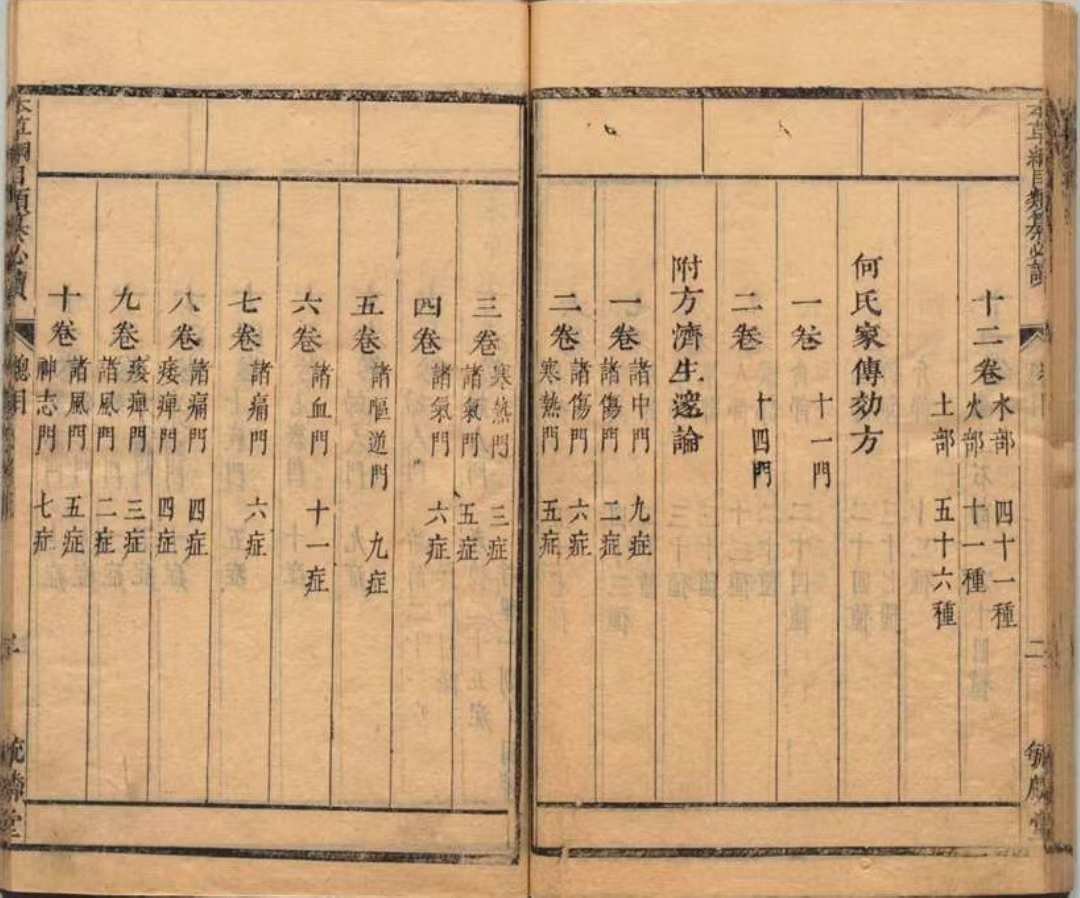 本草綱目類纂必讀
二
毓麟堂
十二卷 水部 四十一種
火部 十一種
土部 五十六種
何氏家傳効方
一卷 十一門
二卷 十四門
附方濟生邃論
一卷 諸中門 九症
諸傷門 二症
二卷 諸傷門 六症
寒熱門 五症
三卷 寒熱門 三症
諸氣門 五症
四卷 諸氣門 六症
五卷 諸嘔逆門 九症
六卷 諸血門 十一症
七卷 諸痛門 六症
八卷 諸痛門 四症
痿痺門 四症
九卷 痿痺門 三症
諸風門 二症
十卷 諸風門 五症
神志門 七症
本草綱目類纂必讀
總目